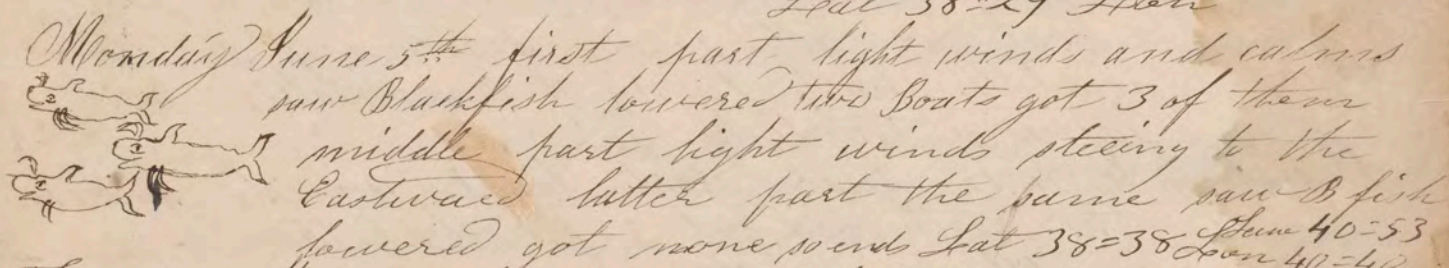 Lat 38=29 Lon
Monday June 5th first part light winds and calms
saw Blackfish lowered two Boats got 3 of them
middle part light winds steeing to the
Eastward latter part the same saw B fish
lowered got none so ends Lat 38=38 40=53
Lon 40=40